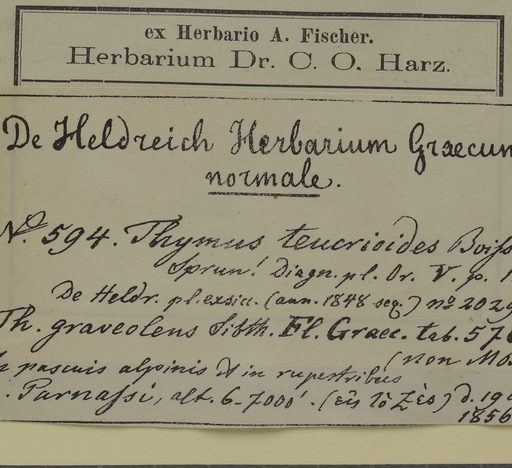 ex Herbario A. Fischer.
Herbarium Dr. C. O. Harz.
De Heldreich Herbarium Graecum
normale.
No. 594. Thymus teucrioides Boiss
Sprun! Diagn. pl. Or. V. p. 1
De Heldr. pl. exsicc. (ann. 1848 seq.) no 2029
Th. graveolens Sibth. Fl. Graec. tab. 576
(non M
In pascuis alpinis et in rupestribus
Parnassi, alt. 6-7000'. (εἰς τὸ Ζὲς) d. 19
1856